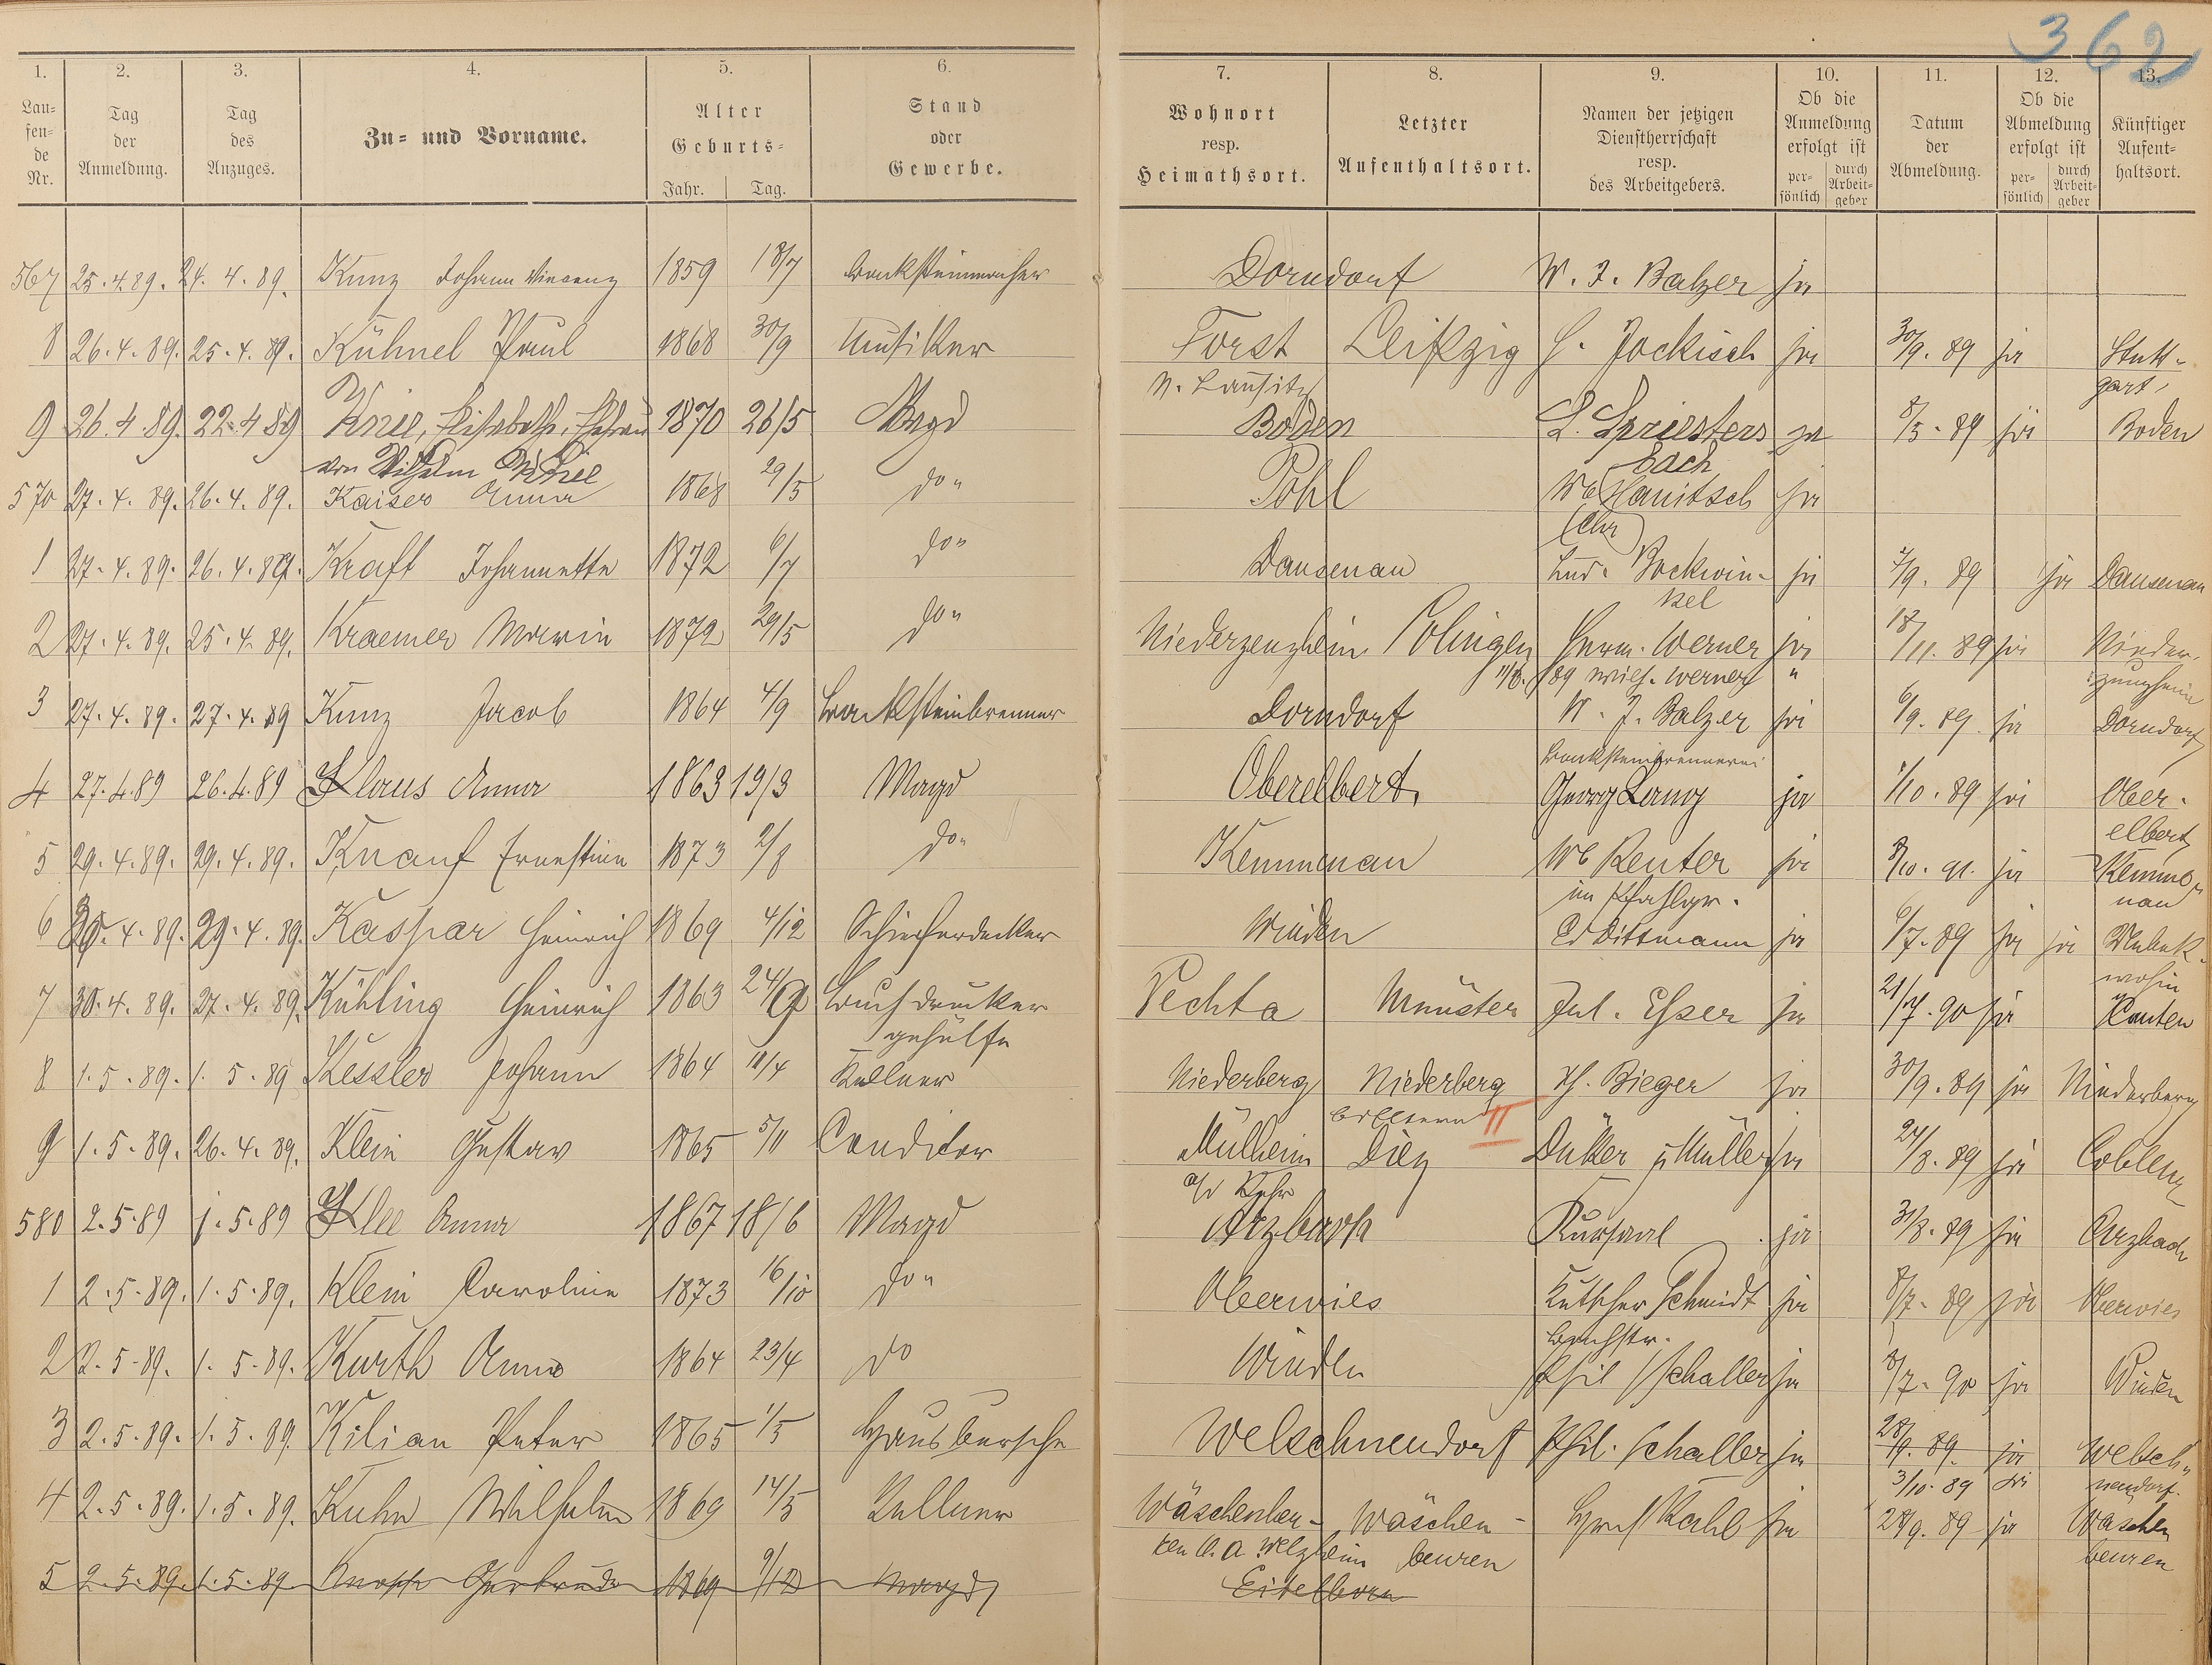 362
1. 2. 3. 4. 5. 6. 7. 8. 9. 10. 11. 12. 13.
Lau=
fen=
de
Nr.
Tag
der
Anmeldung.
Tag
des
Anzuges.
Zu= und Vorname.
Alter
Geburts=
Jahr. Tag.
Stand
oder
Gewerbe.
Wohnort
resp.
Heimathsort.
Letzter
Aufenthaltsort.
Namen der jetzigen
Dienstherrschaft
resp.
des Arbeitgebers.
Ob die
Anmeldung
erfolgt ist
per=
sönlich
durch
Arbeit=
geber
Datum
der
Abmeldung.
Ob die
Abmeldung
erfolgt ist
per=
sönlich
durch
Arbeit=
geber
Künftiger
Aufent=
haltsort.
567 25.4.89. 24.4.89. Kunz Johann Vincenz 1859 18/7 Dorndorf W. J. Balzer ja
8 26.4.89. 25.4.89. Kühnel Paul 1868 30/9 Musiker Forst Leipzig G. Jockisch ja 30/9.89 ja Stutt-
N. Lausitz gart
9 26.4.89. 22.4.89 Knie, Elisabeth, Ehefrau 1870 26/5 Magd Boden L. Spriesters ja 8/5.89 ja Boden
von Wilhelm Knie bach
570 27.4.89. 26.4.89. Kaiser Anna 1868 29/5 do" Pohl We Hanitsch ja
(Chr)
1 27.4.89. 26.4.89. Kraft Johannette 1872 6/7 do" Dausenau Lud. Bockwin- ja 2/9.89 ja Dausenau
kel
2 27.4.89. 25.4.89. Kraemer Maria 1872 29/5 do" Niederzeuzheim Solingen Herm. Werner ja 18/11.89 ja Nieder-
11/8.89 Wilh. Werner " zeuzheim
3 27.4.89. 27.4.89 Kunz Jacob 1864 4/9 Backsteinbrenner Dorndorf W. J. Balzer ja 6/9.89 ja Dorndorf
Backsteinbrennerei
4 27.4.89 26.4.89 Klaus Anna 1863 19/3 Magd Oberelbert, Georg Lang ja 1/10.89 ja Ober-
elbert
5 29.4.89. 29.4.89. Knauf Ernestine 1873 2/8 do" Kemmenau We Reuter ja 8/10.91. ja Kemme-
im Pfahlgr. nau
6 30.4.89. 29.4.89. Kaspar Heinrich 1869 4/12 Schieferdecker Winden Ed Dittmann ja 6/7.89 ja ja Unbek.
wohin
7 30.4.89. 27.4.89. Kühling Heinrich 1863 24/9 Buchdrucker Vechta Münster Jul. Esser ja 21/7.90 ja Xanten
gehülfe
8 1.5.89. 1.5.89 Kessler Johann 1864 Kellner Niederberg Niederberg Th. Bieger ja 30/9.89 ja Niederberg
b. Eltern II
9 1.5.89. 26.4.89. Klein Gustav 1865 5/11 Conditor Mülheim Diez Düker & Müller ja 24/8.89 ja Coblenz
a/d Ruhr
580 2.5.89 1.5.89 Klee Anna 1867 18/6 Magd Arzbach Kursaal ja 31/8.89 ja Arzbach
1 2.5.89. 1.5.89. Klein Caroline 1873 16/10 do" Oberwies Kutscher Schmidt ja 8/7.89 ja Oberwies
Bachstr.
2 2.5.89. 1.5.89. Kurth Anna 1864 23/4 do Winden Phil Schaller ja 8/7.90 ja Winden
3 2.5.89. 1.5.89. Kilian Peter 1865 1/5 Hausbursche Welschneudorf Phil. Schaller ja 28/9.89. ja Welsch-
3/10.89 ja neudorf.
4 2.5.89. 1.5.89. Kuhn Wilhelm 1869 14/5 Kellner Wäschenbeu- Wäschen- Kahl ja 28/9.89 ja Waschen
ren O. A. Welzheim beuren beuren
5 2.5.89. 1.5.89 Gertrude 1869 9/12 Magd Eitelborn